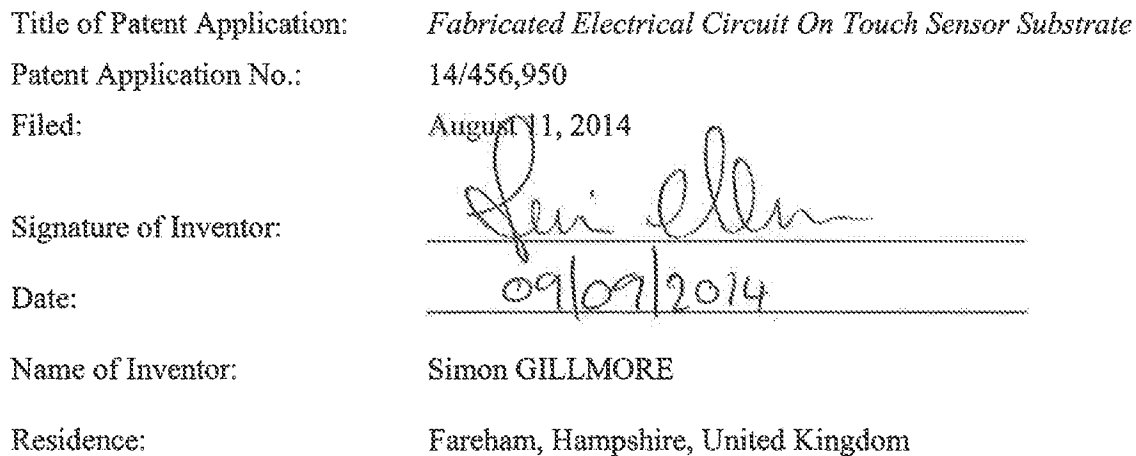 Title of Patent Application: Fabricated Electrical Circuit On Touch Sensor Substrate
Patent Application No.: 14/456,950
Filed: August 11, 2014
Signature of Inventor:
Date: 09/09/2014
Name of Inventor: Simon GILLMORE
Residence: Fareham, Hampshire, United Kingdom